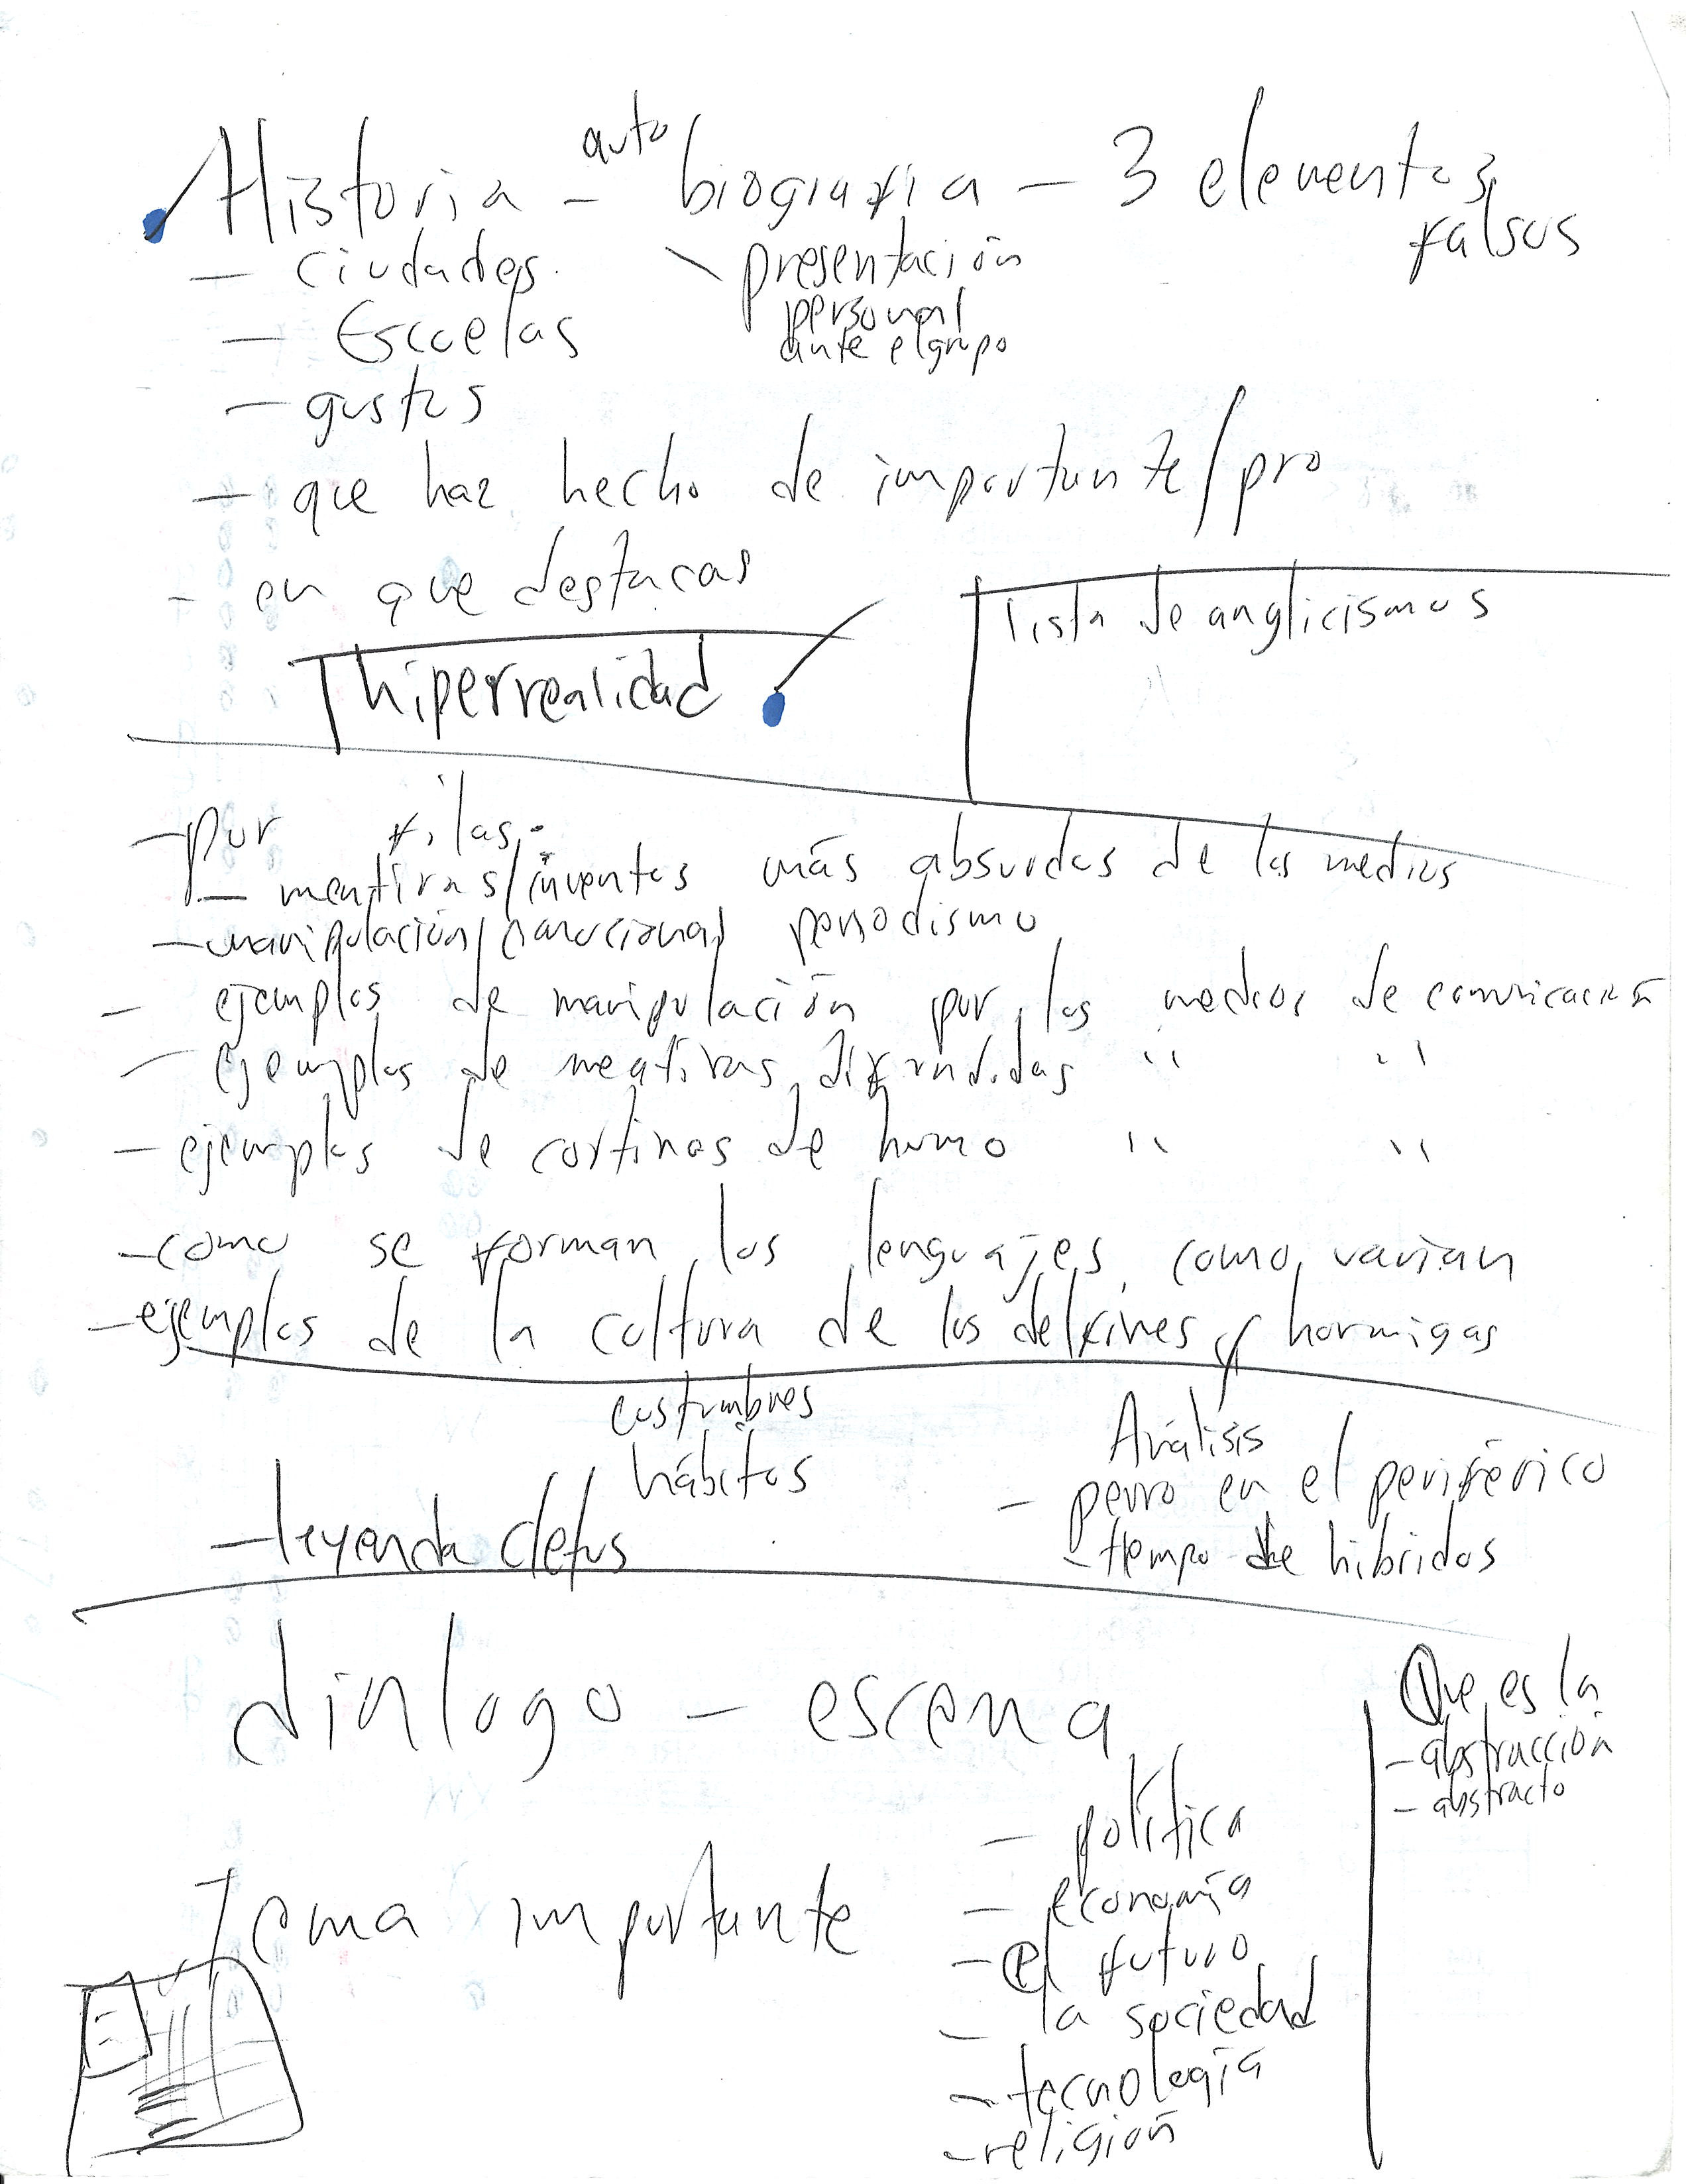 Historia - auto biografia - 3 elementos falsos
- ciudades
- Escuelas
- gustos
\ presentación
personal
ante el grupo
- que haz hecho de importante/pro
- en que destacas
hiperrealidad
lista de anglicismos
- por filas:
- mentiras/inventos más absurdos de los medios
- manipulación/emocional periodismo
- ejemplos de manipulación por los medios de comunicación
- ejemplos de mentiras difundidas " "
- ejemplos de cortinas de humo " "
- como se forman los lenguajes, como varían
- ejemplos de la cultura de los delfines y hormigas
costumbres
hábitos
- leyenda
Análisis
- perro en el periférico
- tiempo de híbridos
dialogo - escena
Tema importante
- política
- economía
- el futuro
- la sociedad
- tecnología
- religión
Que es la
- abstracción
- abstracto